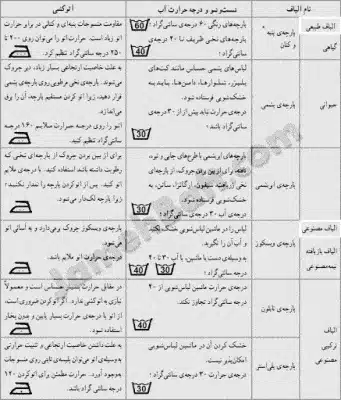 نام الیاف
شستشو و درجه حرارت آب
اتوکشی
الیاف طبیعی
گیاهی
پارچه‌ی پنبه
و کتان
پارچه‌های رنگی ۶۰ درجه سانتی‌گراد؛
پارچه‌های نخی ظریف تا ۴۰ درجه
سانتی‌گراد.
60
40
مقاومت منسوجات پنبه‌ای و کتانی در برابر حرارت
اتو زیاد است. حرارت اتو را می‌توان روی ۲۰۰ تا
۲۵۰ درجه سانتی‌گراد تنظیم کرد.
حیوانی
پارچه‌ی پشمی
لباس‌های پشمی حساس مانند کت‌های
پشمی، شلوارها، دامن‌ها، باید به
خشک‌شویی فرستاده شود.
درجه‌ی حرارت نباید بیش از ۳۰ درجه‌ی
سانتی‌گراد باشد؛
30
به علت خاصیت ارتجاعی بسیار زیاد، دیر چروک
می‌شوند. پارچه‌ی نخی مرطوبی روی پارچه‌ی پشمی
قرار دهید، زیرا اتو کردن مستقیم پارچه، آن را برق
می‌اندازد.
اتو را روی درجه‌ی حرارت ملایم ۱۶۰ درجه
سانتی‌گراد تنظیم کنید.
پارچه‌ی ابریشمی
پارچه‌های ابریشمی با طرح‌های چاپی و
درجه‌ی آب ۳۰ درجه‌ی سانتی‌گراد؛
30
برای از بین بردن چروک از پارچه‌ای نخی که
رطوبت داشته باشد استفاده کنید. با درجه‌ی ملایم
اتو کنید. پس از اتو کردن پارچه را تا نکنید؛
زیرا پارچه لک‌دار می‌شود.
الیاف مصنوعی
الیاف بازیافته
نیمه‌مصنوعی
پارچه‌ی ویسکوز
لباس را در ماشین لباس‌شویی خشک نکنید
و آب آن را نگیرید.
به‌وسیله‌ی دست یا ماشین، با آب ۳۰ تا ۴۰
درجه‌ی سانتی‌گراد؛
40
30
پارچه‌ی ویسکوز چروک برمی‌دارد و به آسانی اتو
می‌شود.
درجه‌ی حرارت اتو ملایم باشد.
الیاف
مصنوعی
ترکیبی
پارچه‌ی نایلون
درجه‌ی حرارت شستشوی از ۴۰
درجه‌ی سانتی‌گراد تجاوز نکند.
40
در مقابل حرارت بسیار حساس است و معمولاً
نیازی به اتوکشی ندارد. اگر اتو کردن ضروری است،
از اتو با درجه‌ی حرارت بسیار پایین و بدون بخار
استفاده شود.
پارچه‌ی پلی‌استر
خشک کردن آن در ماشین لباس‌شویی
امکان‌پذیر نیست.
درجه‌ی حرارت ۳۰ درجه‌ی سانتی‌گراد؛
30
به علت داشتن خاصیت ارتجاعی و تثبیت حرارتی
به‌وسیله‌ی اتو می‌توان پلیسه‌ی ثابتی روی منسوجات
به‌وجود آورد. حرارت مطمئن برای اتو کردن ۱۲۰
درجه‌ی سانتی گراد باشد.